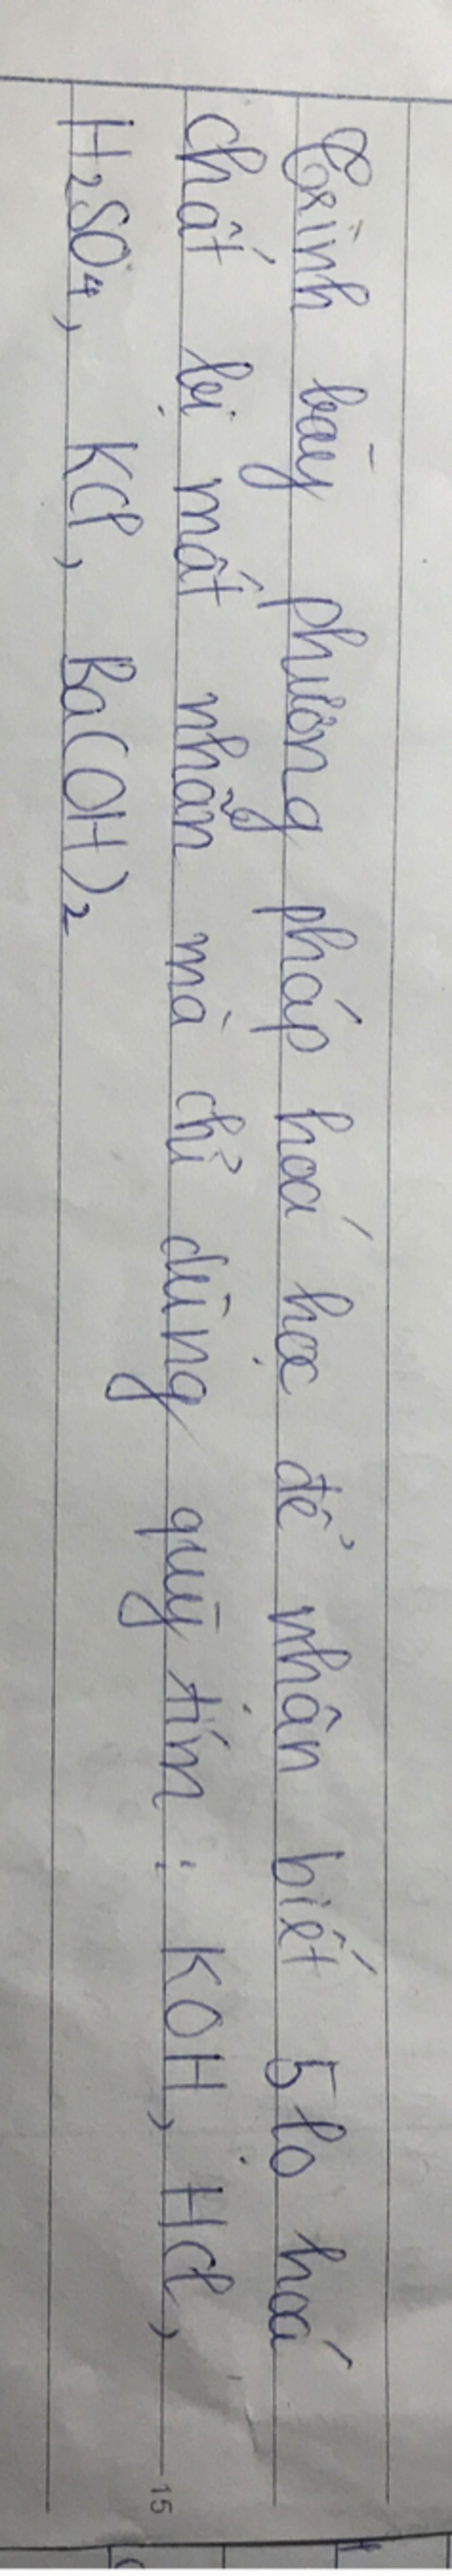 Trình bày phương pháp hoá học để nhận biết 5 lọ hoá
chất bị mất nhãn mà chỉ dùng quỳ tím : KOH, HCl,
H₂SO₄, KCl, Ba(OH)₂
15